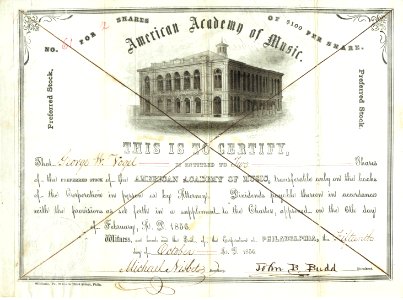 NO. 61 FOR 2 SHARES OF $100 PER SHARE.
American Academy of Music.
Preferred Stock.
Preferred Stock.
THIS IS TO CERTIFY,
That George W. is entitled to Two Shares
of the PREFERRED STOCK of the AMERICAN ACADEMY OF MUSIC, transferable only on the books
of the Corporation in person or by Attorney. Dividends payable thereon in accordance
with the provisions as set forth in a supplement to the Charter, approved on the 6th day
of February, A. D. 1856.
Witness, our hands and the Seal of the Corporation at PHILADELPHIA, the Fifteenth
day of October A. D. 1856
Michael Nisbet Secretary. John B. Budd President.